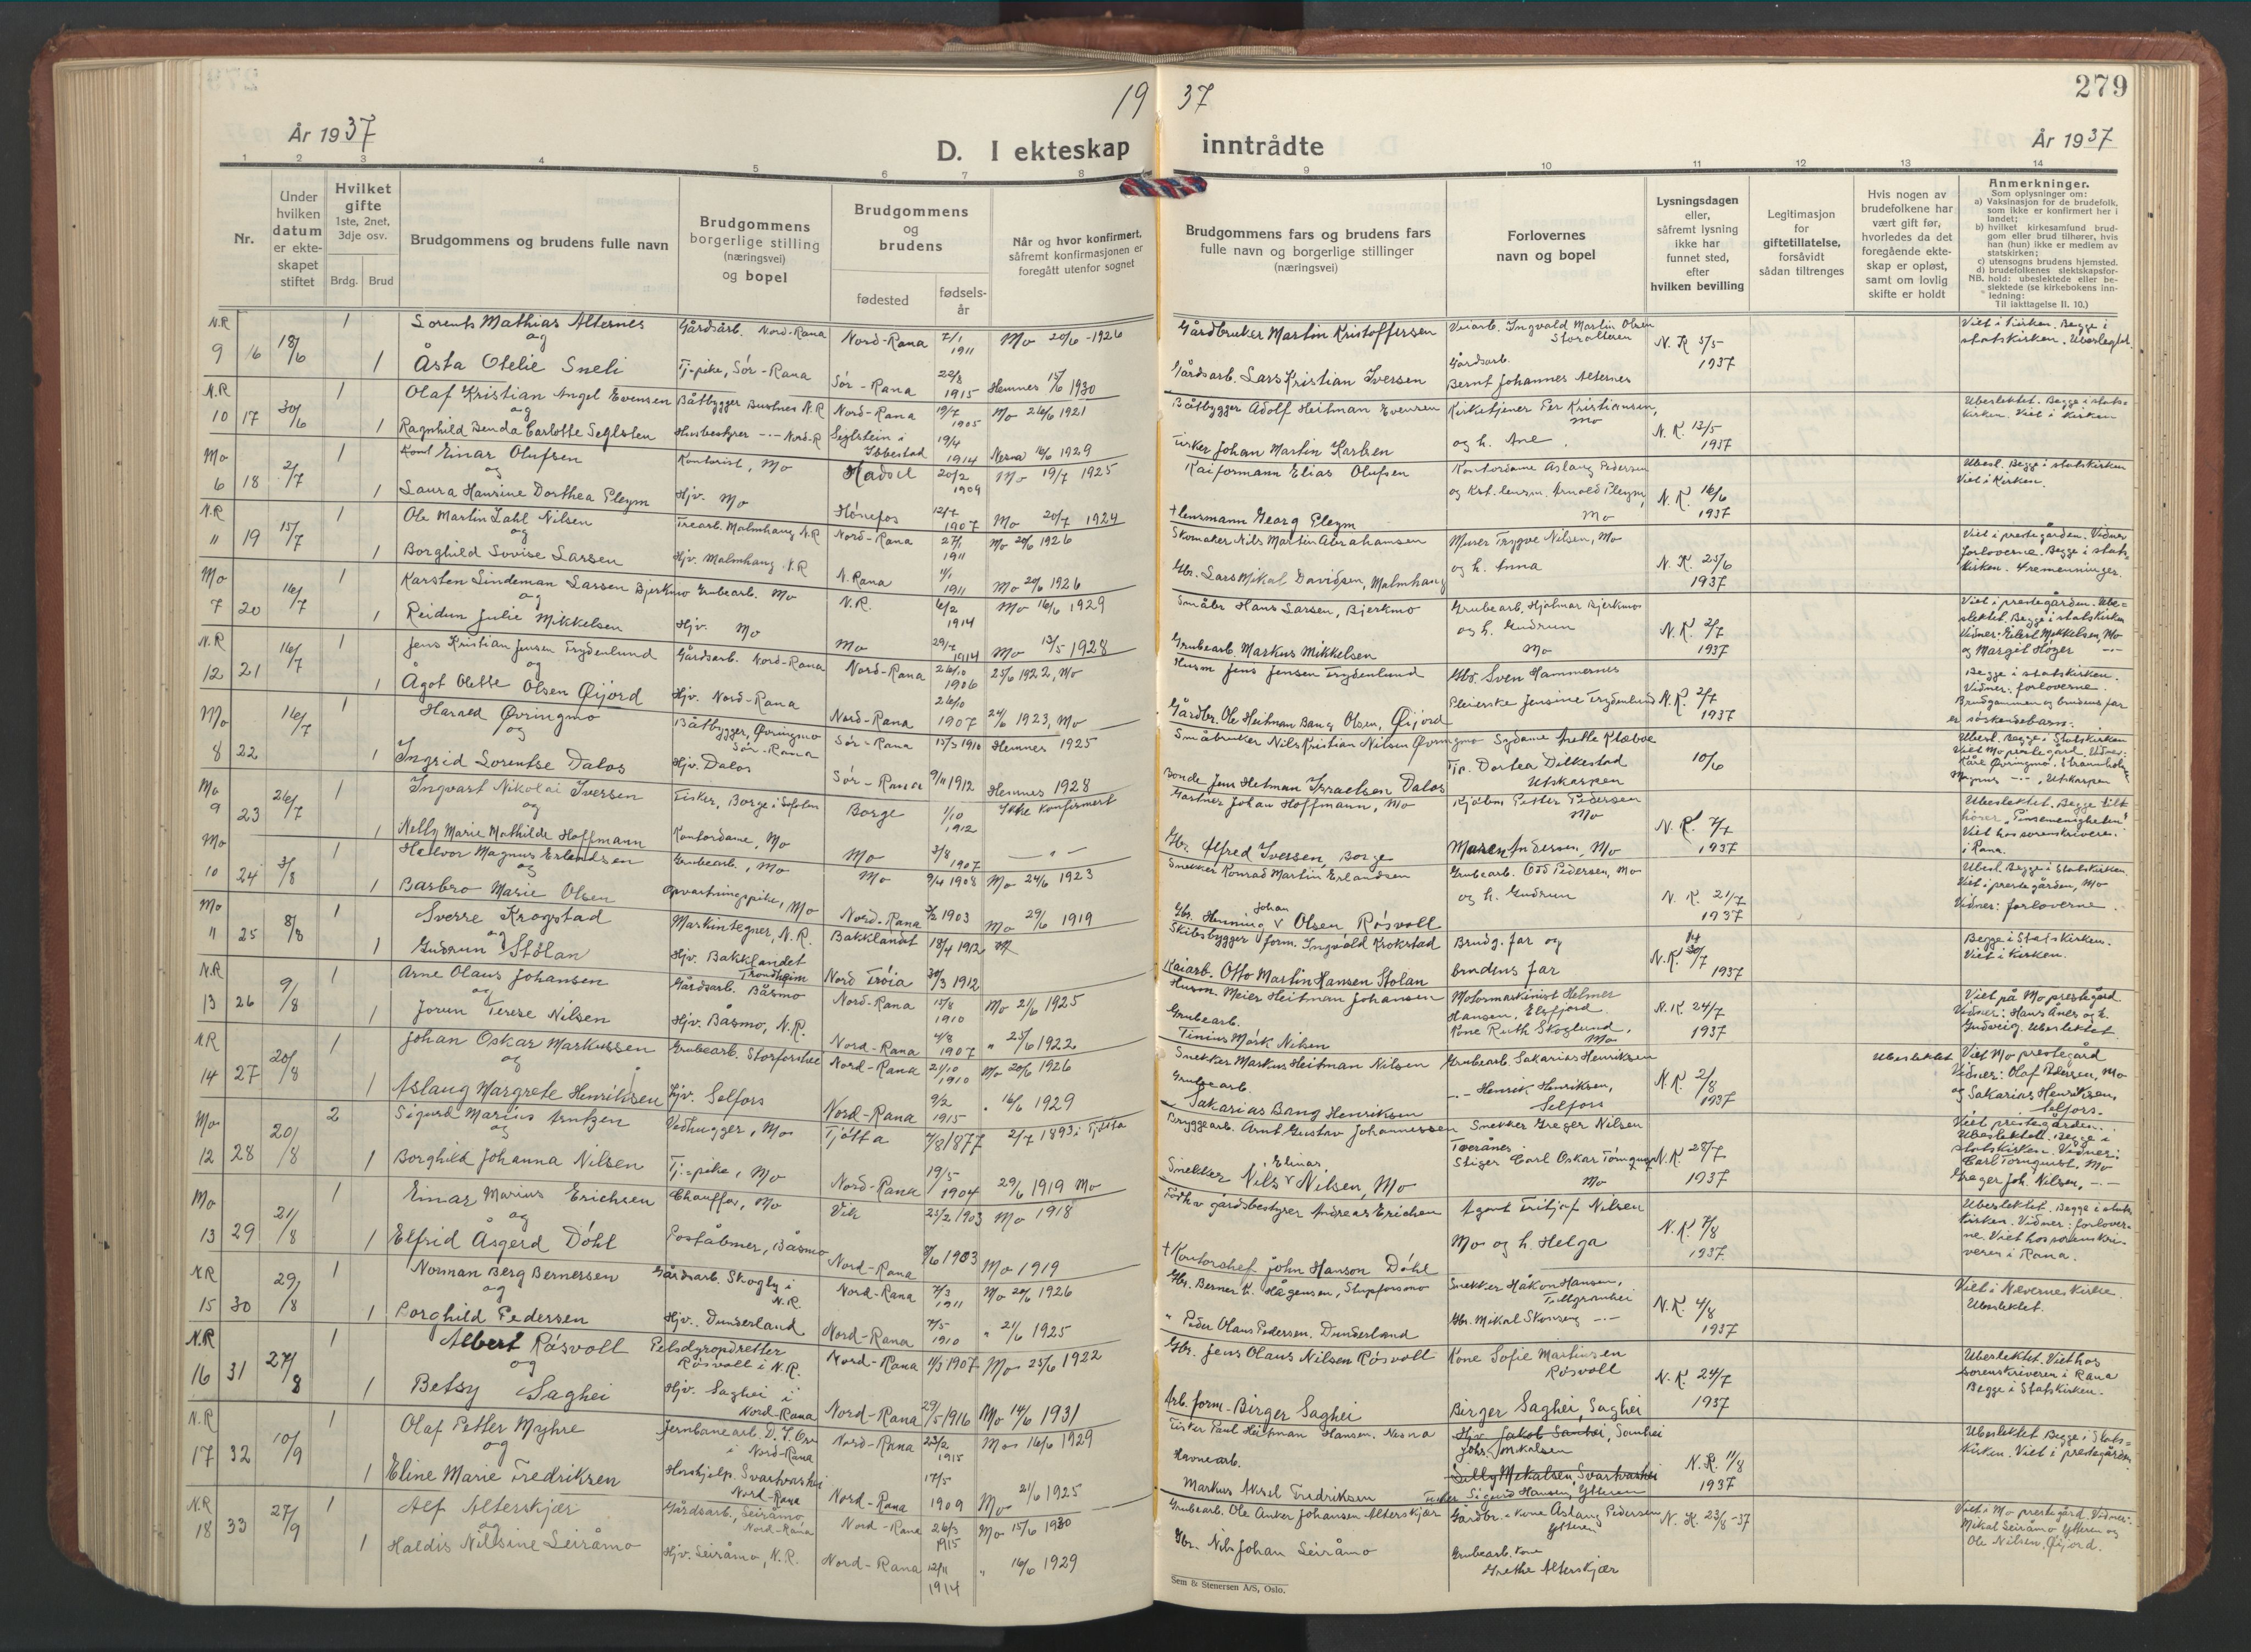 279
19 37
År 1937
D. I ekteskap inntrådte
År 1937
1 2 3 4 5 6 7 8 9 10 11 12 13 14
Nr.
Under hvilken datum er ekteskapet stiftet
Hvilket gifte
1ste, 2net, 3dje osv.
Brdg. Brud
Brudgommens og brudens fulle navn
Brudgommens borgerlige stilling (næringsvei) og bopel
Brudgommens og brudens
fødested
fødselsår
Når og hvor konfirmert, såfremt konfirmasjonen er foregått utenfor sognet
Brudgommens fars og brudens fars fulle navn og borgerlige stillinger (næringsvei)
Forlovernes navn og bopel
Lysningsdagen eller, såfremt lysning ikke har funnet sted, efter hvilken bevilling
Legitimasjon for giftetillatelse, forsåvidt sådan tiltrenges
Hvis nogen av brudefolkene har vært gift før, hvorledes da det foregående ekteskap er opløst, samt om lovlig skifte er holdt
Anmerkninger.
Som oplysninger om:
a) Vaksinasjon for de brudefolk, som ikke er konfirmert her i landet;
b) hvilket kirkesamfund brudgom eller brud tilhører, hvis han (hun) ikke er medlem av statskirken;
c) utensogns brudens hjemsted.
d) brudefolkenes slektskapsforhold: ubeslektede eller beslektede (se kirkebokens innledning:
NB.
Til iakttagelse II. 10.)
N.R 9 16 18/6 1 Lorents Mathias Alternes Gårdsarb. Nord-Rana Nord-Rana 7/1 1911 Mo 20/6 - 1926 Gårdbruker Martin Kristoffersen Veiarb. Ingvald Martin Olsen Storalteren N.R 5/5 1937 Viet i kirken. Begge i statskirken.
og
1 Åsta Otelie Sneli Tj.pike, Sør-Rana Sør-Rana 22/8 1915 Hemnes 15/6 1930 Gårdsarb. Lars Kristian Iversen Gårdsarb. Bernt Johannes Alternes
N.R 10 17 30/6 1 Olaf Kristian Angel Evensen Båtbygger Bustnes N.R Nord-Rana 19/7 1905 Mo 26/6 1921 Båtbygger Adolf Heitman Evensen Kirketjener Per Kristiansen, Mo N.R. 13/5 1937 Ubeslektet. Begge i statskirken. Viet i kirken
og
1 Ragnhild Benda Carlotte Seglsten Husbestyrer -"- Nord-R Seglstein i Ibbestad 19/4 1914 Nesna 16/6 1929 Fisker Johan Martin Karlsen og h. Ane
Mo 6 18 2/7 1 Einar Olufsen Kontorist, Mo Hadsel 20/2 1909 Mo 19/7 1925 Kaiformann Elias Olufsen Kontordame Aslaug Pedersen N.R. 16/6 1937 Ubesl. Begge i statskirken Viet i Kirken.
og
1 Laura Hansine Dorthea Pleym Hjv. Mo Hönefos 12/7 1907 Mo 20/7 1924 + lensmann Georg Pleym og Kst. lensm. Arnold Pleym, Mo
N.R. 11 19 15/7 1 Ole Martin Dahl Nilsen Trearb. Malmhaug N.R Nord-Rana 27/1 1911 Mo 20/6 1926 Skomaker Nils Martin Abrahamsen Murer Trygve Nilsen, Mo N.R. 25/6 1937 Viet i prestegården. Vidner forloverne. Begge i statskirken. Fremenninger.
og
1 Borghild Lovise Larsen Hjv. Malmhaug N.R N.Rana 4/1 1911 Mo 20/6 1926 Gbr. Lars Mikal Davidsen, Malmhaug og h. Anna
Mo 7 20 16/7 1 Karsten Lindeman Larsen Bjerkmo Grubearb. Mo N.R. 6/2 1914 Mo 16/6 1929 Småbr Hans Larsen, Bjerkmo Grubearb. Hjalmar Bjerkmo N.R. 2/7 1937 Viet i prestegården. Ubeslektet. Begge i statskirken Vidner: Eilert Mikkelsen, Mo og Margit Höger -"-
og
1 Reidun Julie Mikkelsen Hjv. Mo Mo 29/7 1914 Mo 13/5 1928 Grubearb. Markus Mikkelsen og h. Gudrun Mo
N.R. 12 21 16/7 1 Jens Kristian Jensen Trydenlund Gårdsarb. Nord-Rana Nord-Rana 26/10 1906 25/6 1922, Mo Husm Jens Jensen Trydenlund Gbr. Sven Hammernes N.R. 2/7 1937 Begge i statskirken. Vidner: forloverne. Brudgommen og brudens far er söskendebarn.
og
1 Ågot Olette Olsen Øijord Hjv. Nord-Rana Nord-Rana 26/10 1907 24/6 1923, Mo Gårdbr. Ole Heitman Bang Olsen, Øijord Pleierske Jensine Trydenlund
Mo 8 22 16/7 1 Harald Øvringmo Båtbygger, Øvringmo Sør-Rana Sør-Rana 15/3 1910 Hemnes 1925 Småbruker Nils Kristian Nilsen Øvringmo Sydame Anette Klæboe 10/6 Ubesl. Begge i Statskirken Viet Mo prestegård. Vidner: Kåre Øvringmo. Magnus -"-, Utskarpen
og
1 Ingrid Lorentse Dalos Hjv. Dalos Sør-Rana 9/11 1912 Hemnes 1928 Bonde Jens Heitman Israelsen Dalos Tjp. Dortea Dilkestad Utskarpen
Mo 9 23 26/7 1 Ingvart Nikolai Iversen Fisker, Borge i Lofoten Borge 1/10 1912 Ikke konfirmert Gartner Johan Hoffmann, Mo Kjöbm Petter Pedersen Mo N.R. 7/7 1937 Ubeslektet. Begge tilhörer "Pinsemenigheten" Viet hos sorenskriveren i Rana.
og
1 Nelly Marie Mathilde Hoffmann Kontordame, Mo Mo 3/8 1907 -"- Gbr Alfred Iversen, Borge Maren Andersen, Mo
Mo 10 24 3/8 1 Hellvor Magnus Erlandsen Grubearb., Mo Mo 9/4 1908 Mo 24/6 1923 Snekker Konrad Martin Erlandsen Grubearb. Odd Pedersen, Mo N.R. 21/7 1937 Ubesl. Begge i Statskirken. Viet i prestegården, Mo Vidner: forloverne.
og
1 Barbro Marie Olsen Opvartningspike, Mo Nord-Rana 3/2 1903 Mo 29/6 1919 Gbr. Henning Johan Olsen Rösvoll og h. Gudrun
Mo 11 25 8/8 1 Sverre Krogstad Maskintegner, N.R. Bakklandet 18/4 1912 Skibsbygger form. Ingvald Krokstad Brudg. far og N.R. 30/7 1937 Begge i Statskirken. Viet i Kirken.
og
1 Gudrun Stölan Hjv. Bakklandet Trondheim Nord Fröia 30/3 1912 Kaiarb. Otto Martin Hansen Stolan brudens far
N.R 13 26 9/8 1 Arne Olaus Johansen Gårdsarb. Båsmo Nord-Rana 15/8 1910 Mo 21/6 1925 Husm. Meier Heitman Johansen Motormaskinist Helmer Hansen, Elsfjord N.R. 24/7 1937 Viet på Mo prestegård Ubeslektet.
og
1 Jorun Terese Nilsen Hjv. Båsmo, N.R. Nord-Rana 4/8 1907 " 25/6 1922 Grubearb. Tinius Mörk Nilsen Kone Ruth Skoglund, Mo
N.R 14 27 20/8 1 Johan Oskar Markussen Grubearb. Storforshei Nord-Rana 21/10 1910 Mo 20/6 1926 Snekker Markus Heitman Nilsen Grubearb Sakarias Henriksen N.R. 2/8 1937 Ubeslektet Viet Mo prestegård Vidner: Olaf Pedersen, Mo og Sakarias Henriksen, Selfors.
og
1 Aslaug Margrete Henriksen Hjv. Selfors Nord-Rana 9/2 1915 " 16/6 1929 Grubearb. Sakarias Bang Henriksen -"- Henrik Henriksen, Selfors
Mo 12 28 20/8 2 Sigurd Marius Arntzen Vedhugger, Mo Tjötta 7/8 1877 2/7 1893 i Tjötta Bryggearb. Arnt Gustav Johannessen Snekker Greger Nilsen Tverånes N.R. 28/7 1937 Viet prestegården. Ubeslektet. Begge i statskirken. Vidner: Carl Törnquist, Mo Greger Joh. Nilsen, -"-
og
1 Borghild Johanna Nilsen Tj.-pike, Mo Nord-Rana 19/5 1904 29/6 1919 Mo Snekker Nils Elinar Nilsen, Mo Stiger Carl Oskar Törnquist Mo
Mo 13 29 21/8 1 Einar Marius Erichsen Chauffør, Mo Vik 25/2 1903 Mo 1918 Fødh.v gårdsbestyrer Andreas Erichsen Agent Fritjof Nilsen N.R. 7/8 1937 Ubeslektet. Begge i statskirken. Vidner: forloverne. Viet hos sorenskriveren i Rana.
og
1 Elfrid Åsgerd Döhl Poståbner, Båsmo Nord-Rana 8/6 1903 Mo 1919 + Kontorchef John Hanson Döhl Mo og h. Helga
N.R 15 30 29/8 1 Norman Berg Bernessen Gårdsarb. Skogly i N.R. Nord-Rana 7/3 1911 Mo 20/6 1926 Gbr. Berner K. Hågensen, Stupforsmo Snekker Håkon Hansen, N.R. 4/8 1937 Viet i Nevernes kirke. Ubeslektet.
og
1 Borghild Pedersen Hjv. Dunderland Nord-Rana 7/5 1910 " 21/6 1925 " Peder Olaus Pedersen. Dunderland Gbr. Mikal Skonseng -"-
N.R 16 31 27/8 1 Albert Rösvoll Pelsdyropdretter Rösvoll i N.R. Nord-Rana 11/3 1907 Mo 25/6 1922 Gbr. Jens Olaus Nilsen Rösvoll Kone Sofie Martinsen Rösvoll N.R. 24/7 1937 Ubeslektet. Viet hos sorenskriveren i Rana Begge i Statskirken.
og
1 Betsy Saghei Hjv. Saghei i Nord-Rana Nord-Rana 29/5 1916 Mo 14/6 1931 Arb. form. Birger Saghei Birger Saghei, Saghei
N.R 17 32 10/9 1 Olaf Petter Myhre Jernbanearb. D. I. Ore i Nord-Rana Nord-Rana 23/2 1915 Mo 16/6 1929 Fisker Paul Heitman Hansen. Nesna N.R. 11/8 1937 Ubeslektet Begge i Statskirken. Viet i prestegården
og
1 Eline Marie Fredriksen Hushjelp. Svartvashei Nord-Rana Nord-Rana 17/5 1909 Mo 21/6 1925 Havnearb. Markus Aksel Fredriksen Sigurd Hansen, Ytteren
N.R 18 33 27/9 1 Alf Alterskjær Gårdsarb., Seiråmo Nord-Rana Nord-Rana 26/3 1915 Mo 15/6 1930 Grubearb. Ole Anker Johansen Alterskjær Gårdbr.-kone Aslaug Pedersen Ytteren N.R. 23/8-37 Viet i Mo prestegård. Vidner: Mikal Seiråmo Ytteren og Ole Nilsen, Øijord.
og
1 Haldis Nilsine Seiråmo Hjv. Seiråmo, N.R. Nord-Rana 12/11 1914 " 16/6 1929 Gbr. Nils Johan Seiråmo Grubearb. kone Grethe Alterskjær
Sem & Stenersen A/S, Oslo.